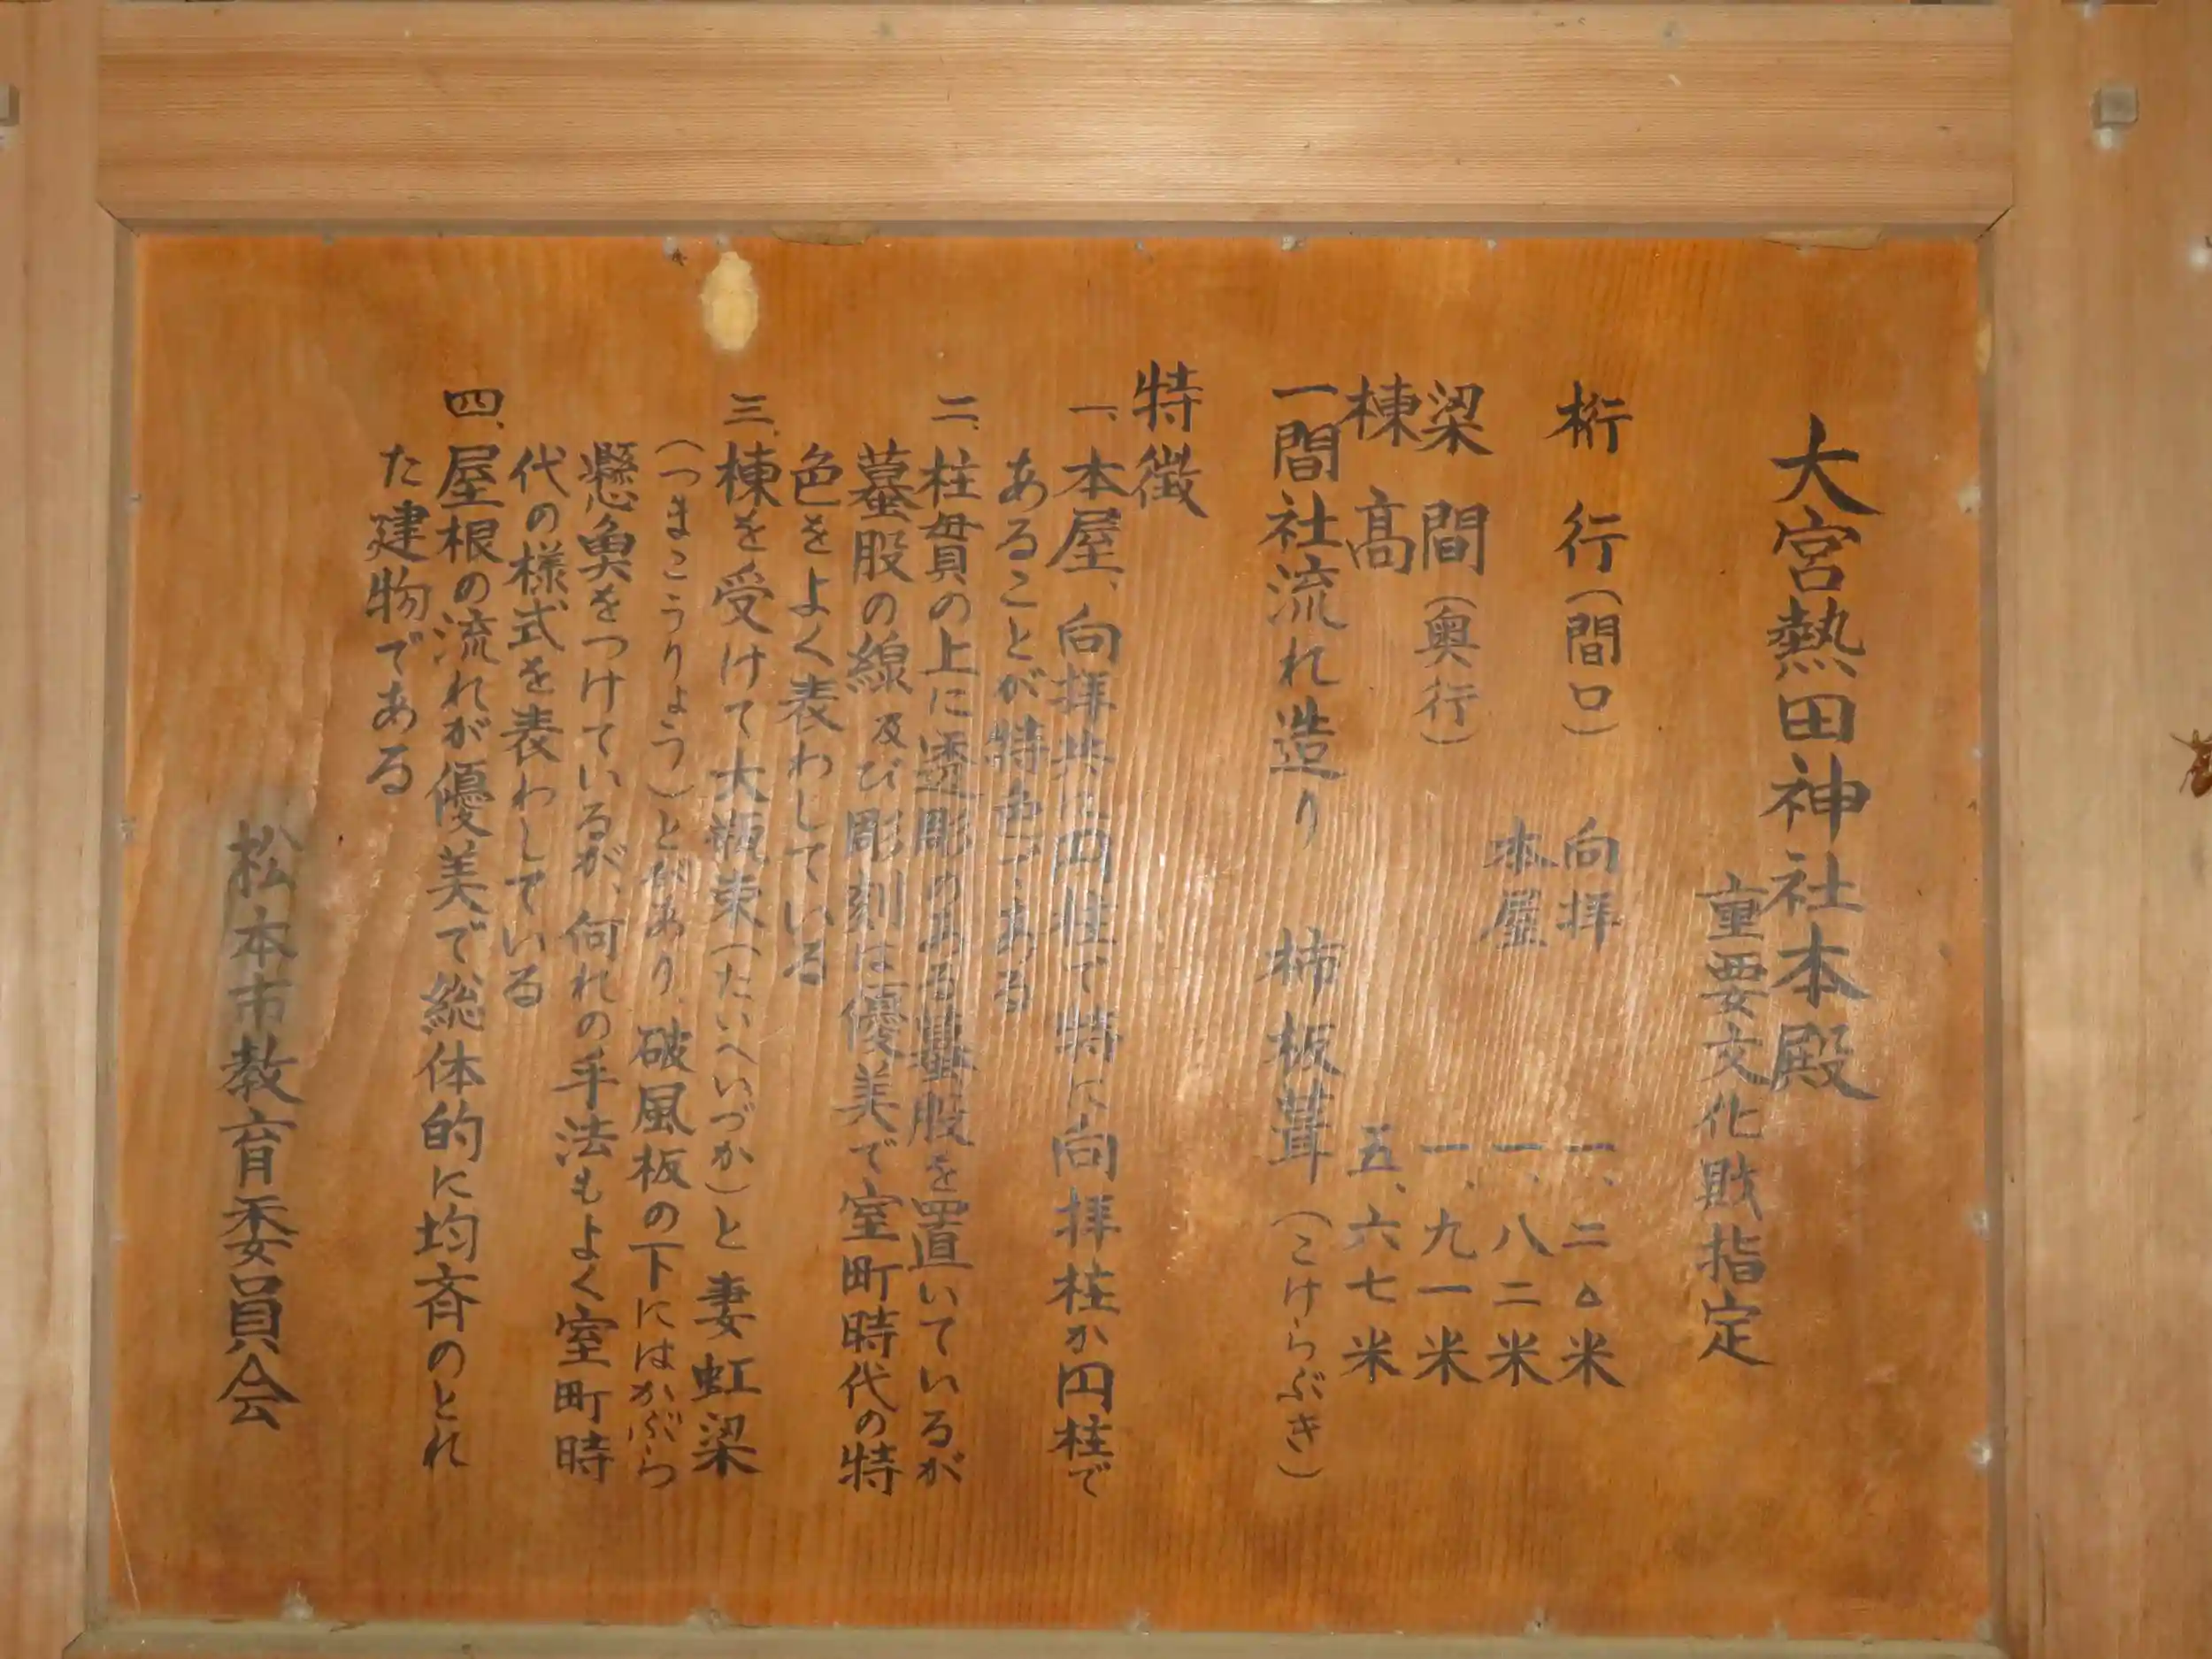 大宮熱田神社本殿
重要文化財指定
桁行(間口) 向拝 一、二〇米
本屋 一、八二米
梁間(奥行) 一、九一米
棟高 五、六七米
一間社流れ造り 柿板葺(こけらぶき)
特徴
一、本屋、向拝共に円柱で特に向拝柱か円柱で
あることが特色である
二、柱貫の上に透彫のある蟇股を置いているが
蟇股の線及び彫刻は優美で室町時代の特
色をよく表わしている
三、棟を受けて大瓶束(たいへいづか)と妻虹梁
(つまこうりょう)とがあり、破風板の下にはかぶら
懸魚をつけているが、何れの手法もよく室町時
代の様式を表わしている
四、屋根の流れが優美で総体的に均斉のとれ
た建物である
松本市教育委員会